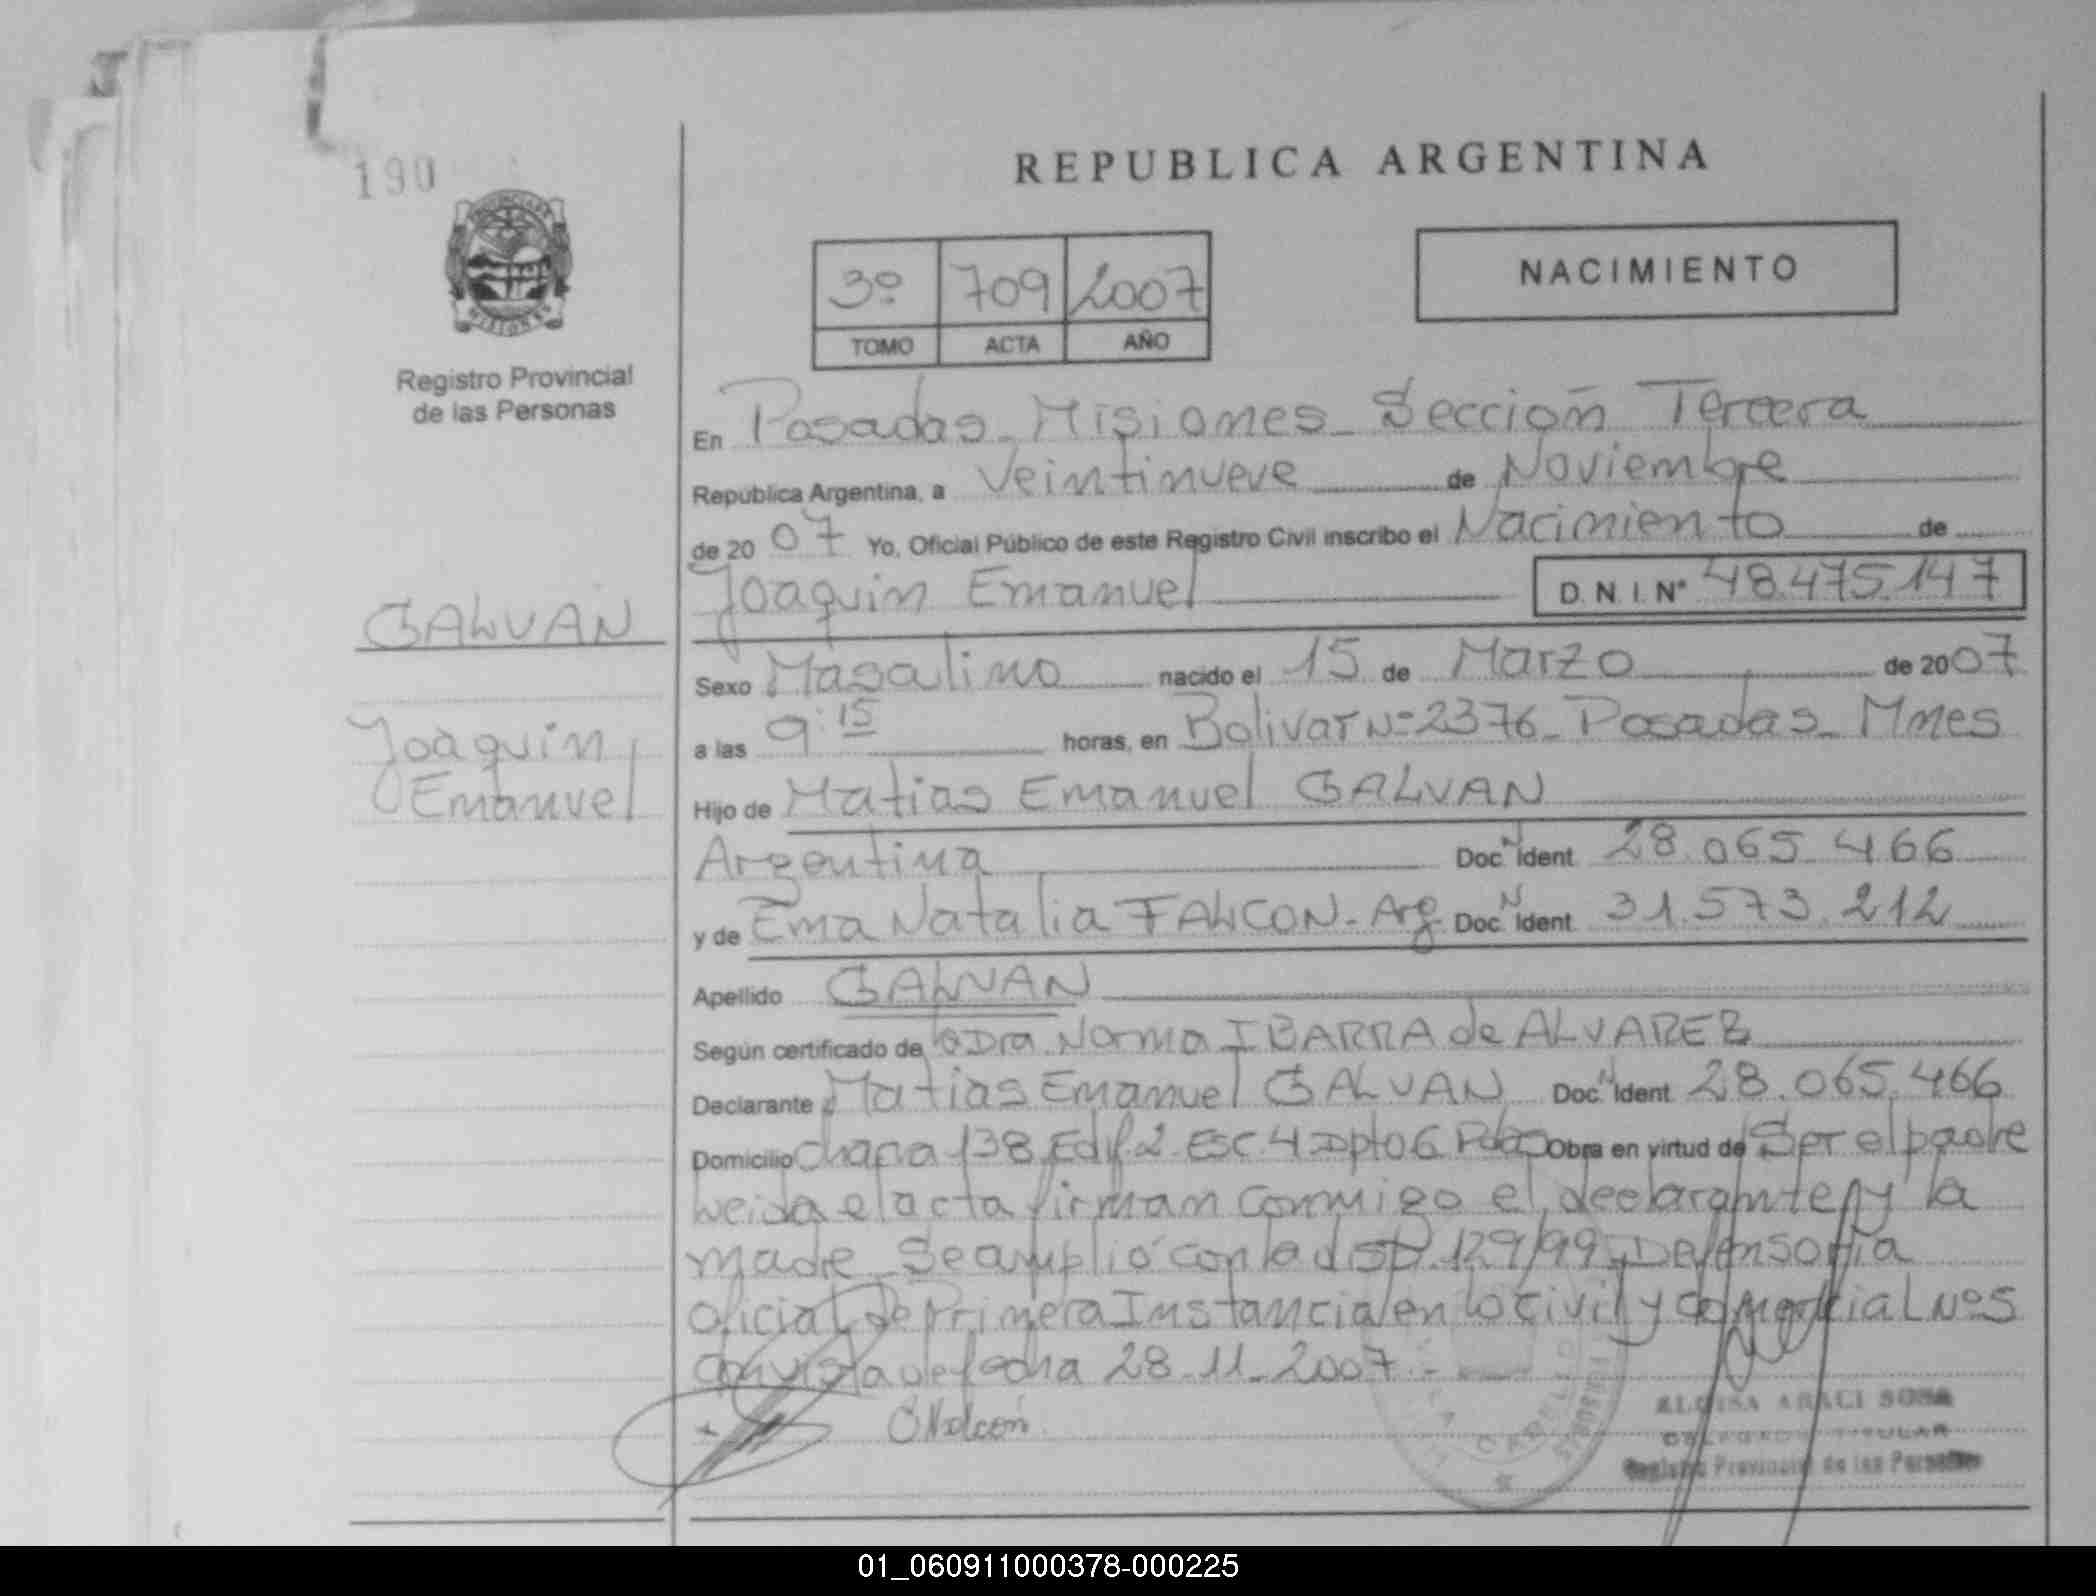 190
REPUBLICA ARGENTINA
3º 709 2007
TOMO ACTA AÑO
NACIMIENTO
Registro Provincial
de las Personas
En Posadas - Misiones - Sección Tercera
República Argentina, a Veintinueve de Noviembre
de 20 07 Yo, Oficial Público de este Registro Civil inscribo el Nacimiento de
Joaquin Emanuel D.N.I. Nº 48.475.147
GALVAN
Sexo Masculino nacido el 15 de Marzo de 2007
Joaquin
Emanuel
a las 9:15 horas, en Bolivar Nº 2376 - Posadas - Mnes
Hijo de Matias Emanuel GALVAN
Argentina Doc. N Ident. 28.065.466
y de Ema Natalia FALCON - Arg Doc. N Ident. 31.573.212
Apellido GALVAN
Según certificado de la Dra Norma IBARRA de ALVAREZ
Declarante Matias Emanuel GALVAN Doc. N Ident. 28.065.466
Domicilio chacra 138 Edif. 2 ESC. 4 Dpto 6 Pdas Obra en virtud de Ser el padre
Leida el acta firman conmigo el declarante y la
madre Se amplió con la disp. 129/99 Defensoria
Oficial de Primera Instancia en lo Civil y Comercial Nº 5
con vista de fecha 28-11-2007.-
ALOISA ARACI SOSA
TITULAR
Registro Provincial de las Personas
01_060911000378-000225